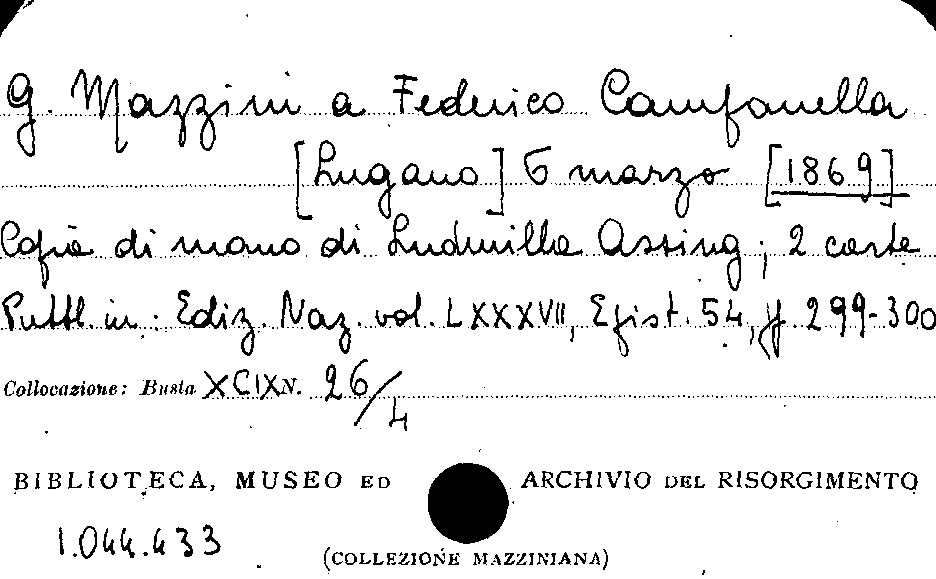 G. Mazzini a Federico Campanella
[Lugano] 6 marzo [1869]
Copia di mano di Ludmilla Assing; 2 carte
Pubbl. in: Ediz. Naz. vol. LXXXVII, Epist. 54, pp. 299-300
Collocazione: Busta XCIX N. 26/4
BIBLIOTECA, MUSEO ED ARCHIVIO DEL RISORGIMENTO
1.044.433
(COLLEZIONE MAZZINIANA)